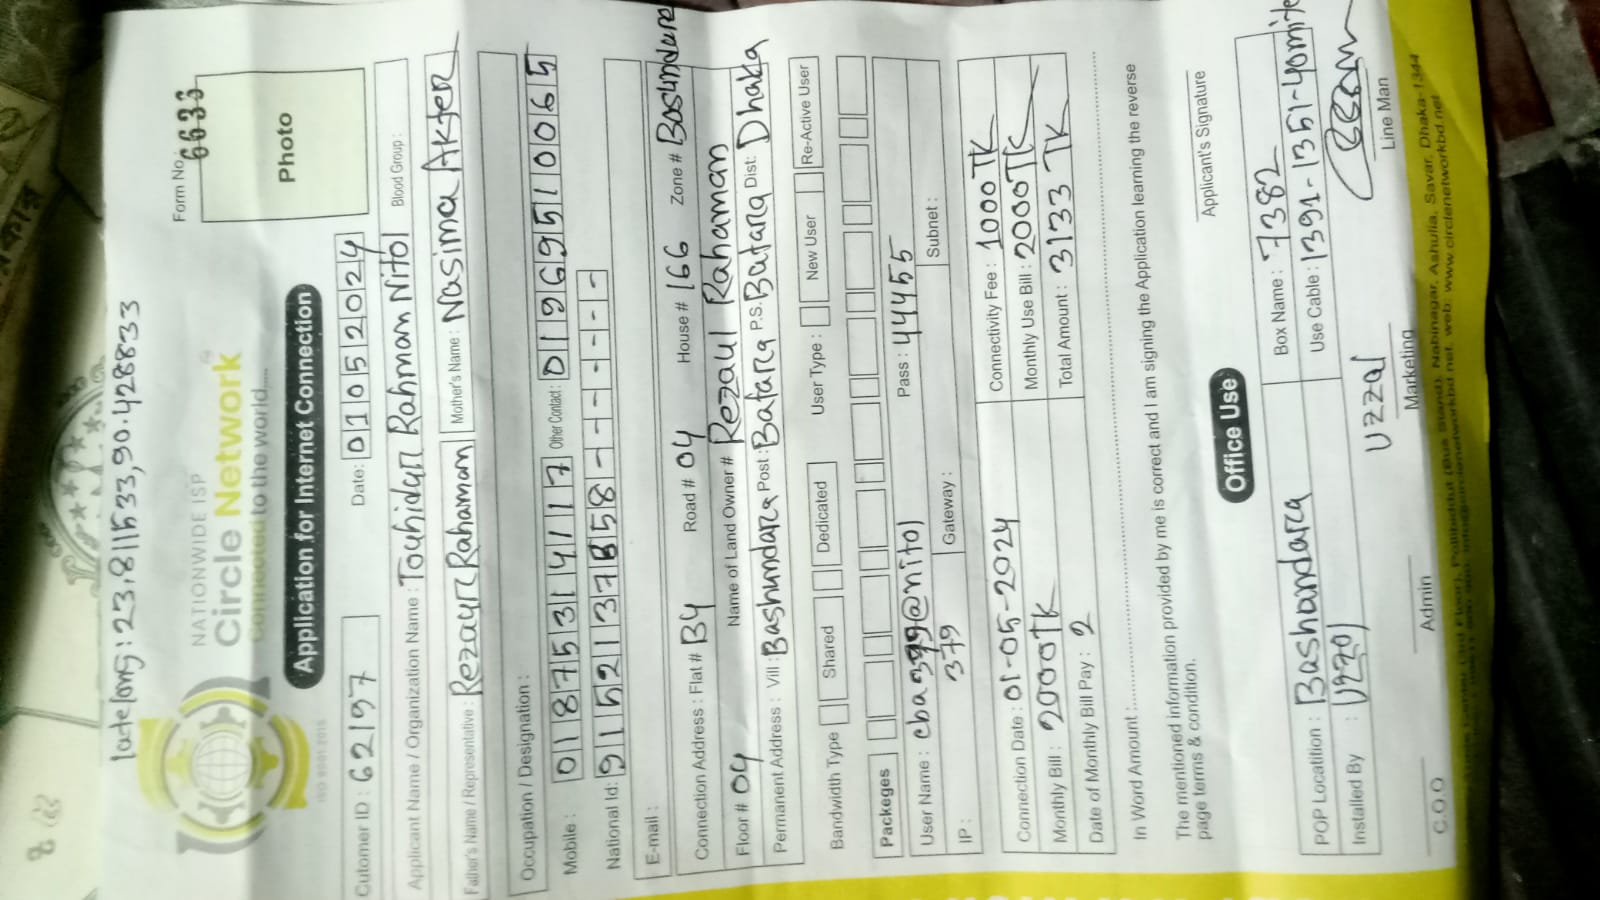 late/long: 23.811533,90.428833
NATIONWIDE ISP
Circle Network
Connected to the world.....
ISO 9001:2015
Form No. 6633
Photo
Application for Internet Connection
Cutomer ID : 62197 Date: 01052024
Applicant Name / Organization Name : Touhidur Rahman Nitol Blood Group :
Father's Name / Representative : Rezaur Rahaman Mother's Name : Nasima Akter
Occupation / Designation :
Mobile : 01875314117 Other Contact: 01969510065
National Id: 9152137858-------
E-mail :
Connection Address : Flat # B4 Road # 04 House # 166 Zone # Bashundara
Floor # 04 Name of Land Owner # Rezaul Rahaman
Permanent Address : Vill : Bashundara Post : Batara P.S. Batara Dist: Dhaka
Bandwidth Type Shared Dedicated User Type : New User Re-Active User
Packeges
User Name : cba379@nitol Pass : 44455
379
IP : Gateway : Subnet :
Connection Date : 01-05-2024 Connectivity Fee : 1000TK
Monthly Bill : 2000TK Monthly Use Bill : 2000TK
Date of Monthly Bill Pay : 2 Total Amount : 3133 TK
In Word Amount :
The mentioned information provided by me is correct and I am signing the Application learning the reverse
page terms & condition.
Applicant's Signature
Office Use
POP Location : Bashandara Box Name : 7382
Installed By : Uzzol Use Cable : 1391-1351-40mite
Uzzal
C.O.O Admin Marketing Line Man